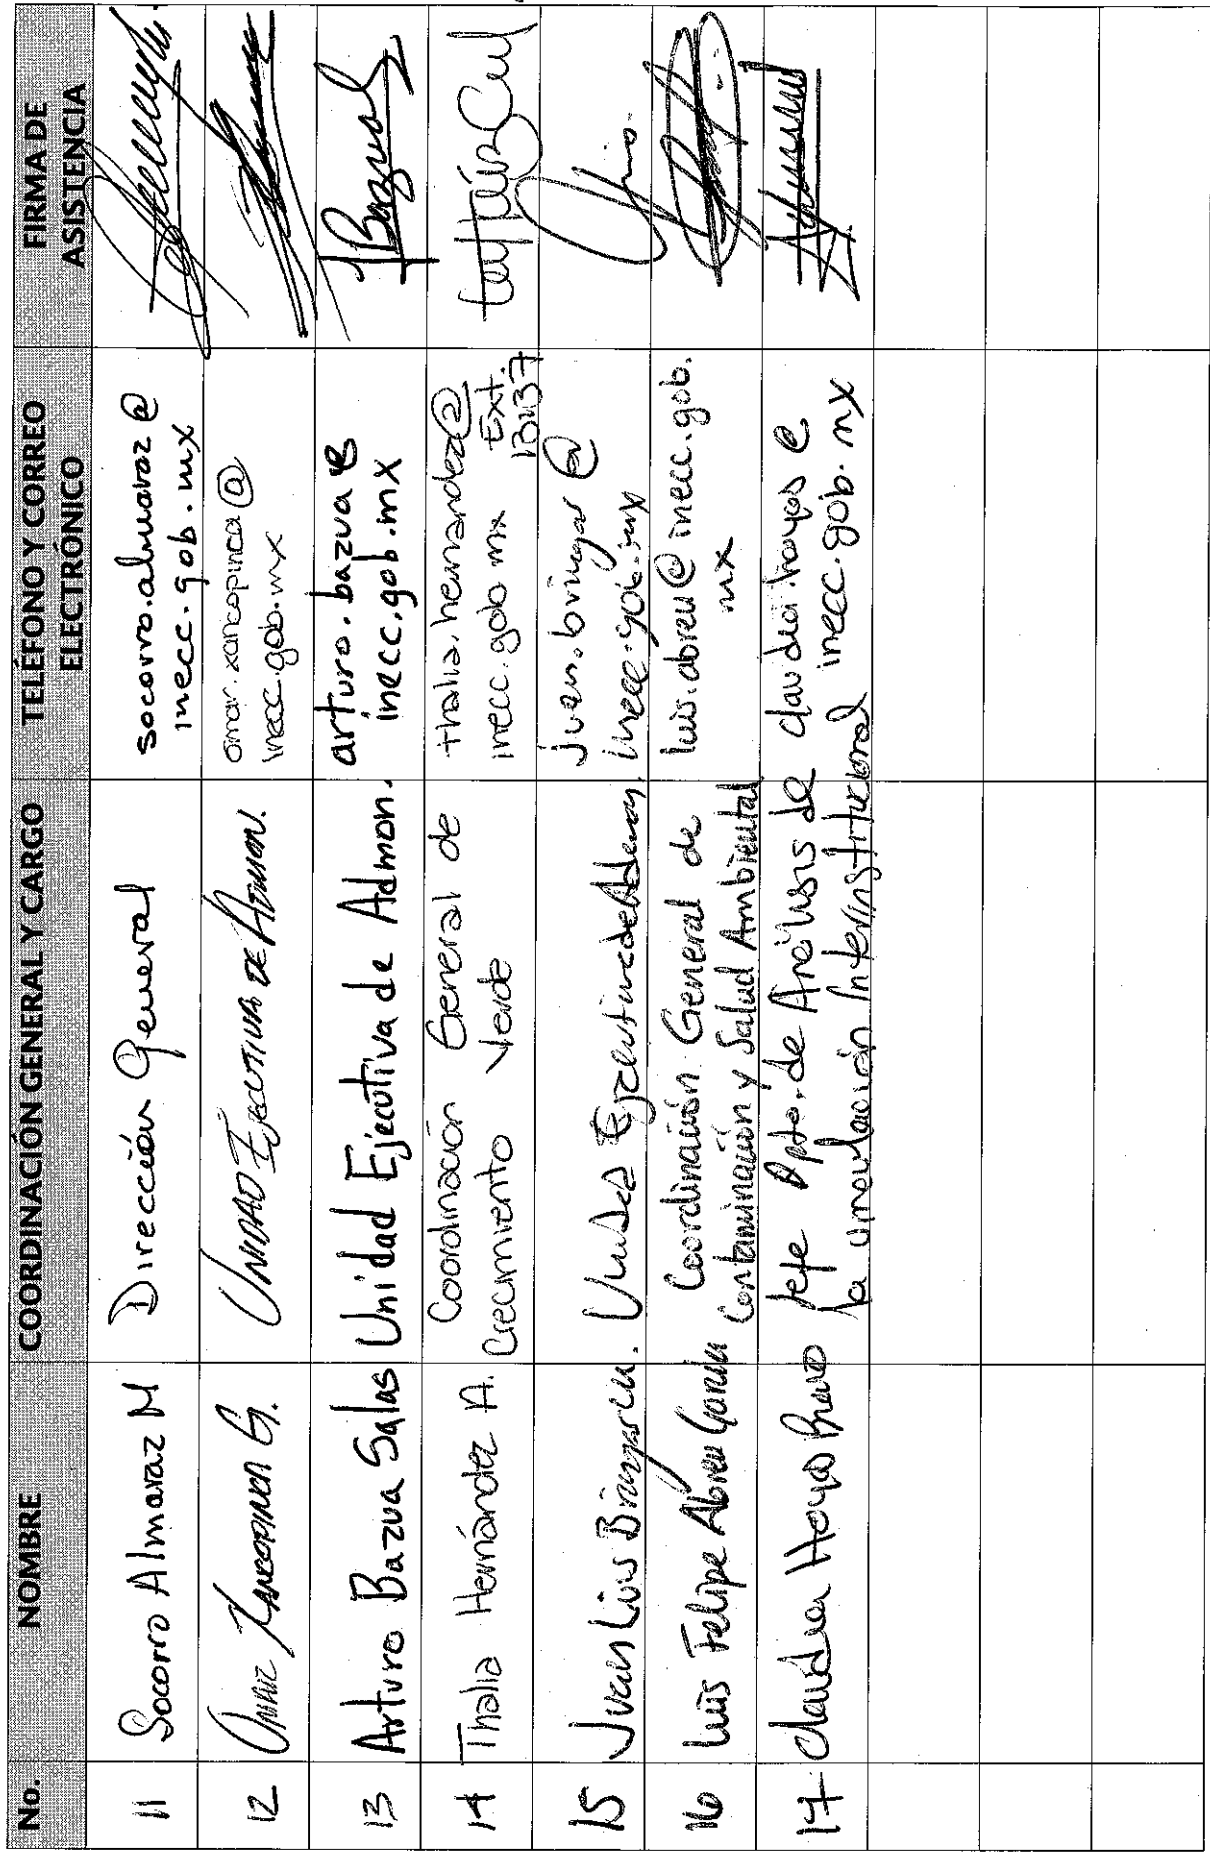 No. NOMBRE COORDINACIÓN GENERAL Y CARGO TELÉFONO Y CORREO ELECTRÓNICO FIRMA DE ASISTENCIA
11 Socorro Almaraz M Dirección General socorro.almaraz@
inecc.gob.mx
12 Omar Xancopinca G. UNIDAD EJECUTIVA DE ADMON. omar.xancopinca@
inecc.gob.mx
13 Arturo Bazua Salas Unidad Ejecutiva de Admon. arturo.bazua@
inecc.gob.mx
14 Thalia Hernández A. Coordinación General de
Crecimiento Verde
thalia.hernandez@
inecc.gob mx Ext.
15 Juan Luis Bringas Unidad Ejecutiva de juan.bringas@
inecc.gob.mx
16 Luis Felipe Abreu García Coordinación General de
Contaminación y Salud Ambiental
luis.abreu@inecc.gob.
mx
17 Claudia Hoyos Bravo Jefe Dpto. de Análisis de
la Interinstitucional
claudia.hoyos@
inecc.gob.mx